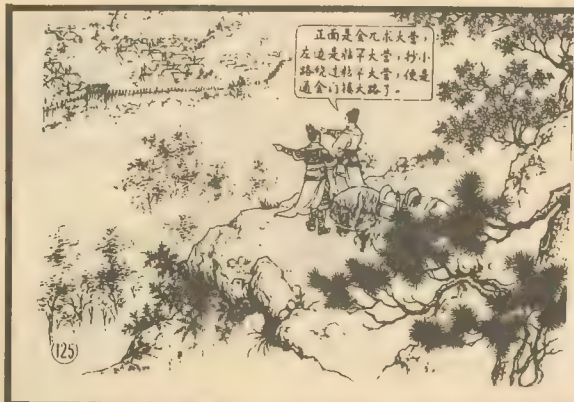 正面是金兀朮大营，
左边是粘罕大营，抄小
路绕过粘罕大营，便是
通金门镇大路了。
125